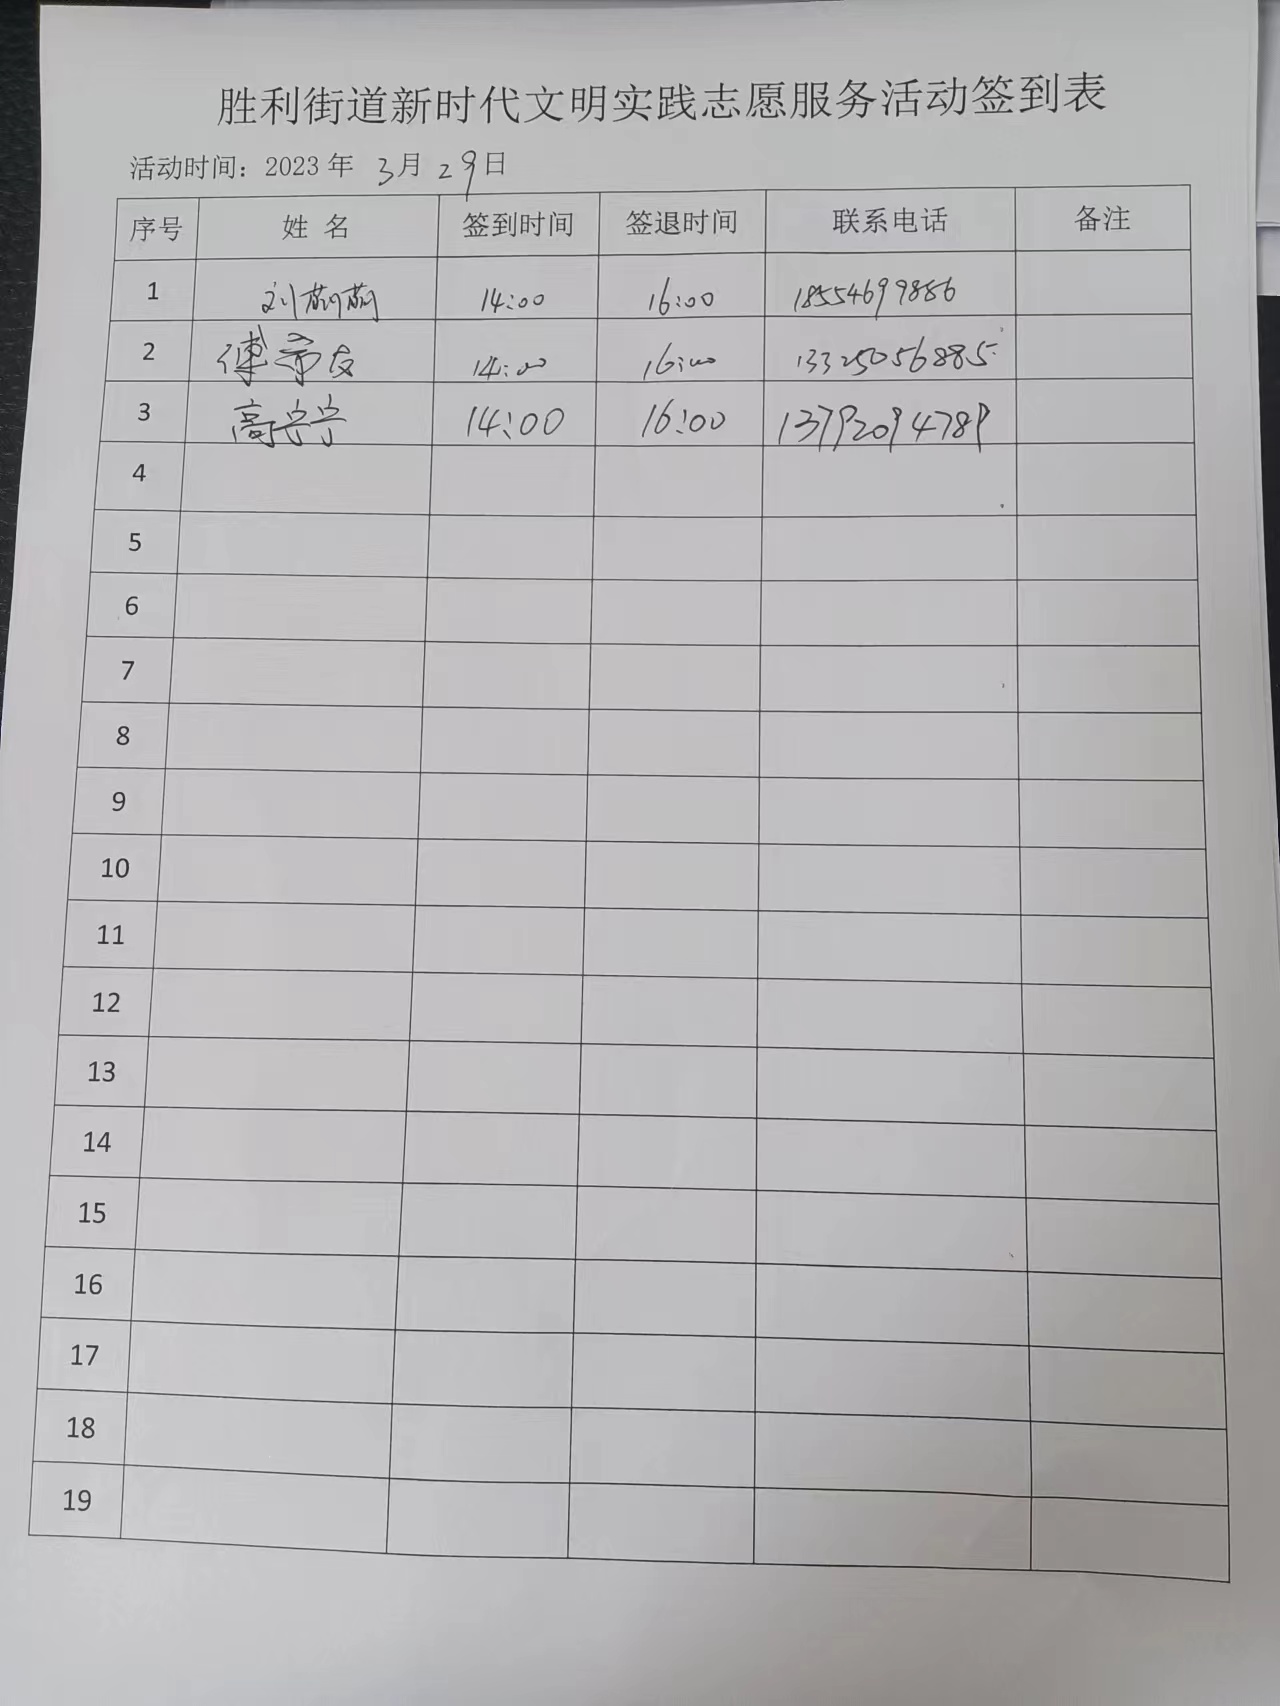 胜利街道新时代文明实践志愿服务活动签到表
活动时间：2023 年 3月 29日
序号 姓 名 签到时间 签退时间 联系电话 备注
1 刘荊荊 14:00 16:00 18554699886
2 傅希友 14:00 16:00 13325056885
3 高宁宁 14:00 16:00 13792094789
4
5
6
7
8
9
10
11
12
13
14
15
16
17
18
19